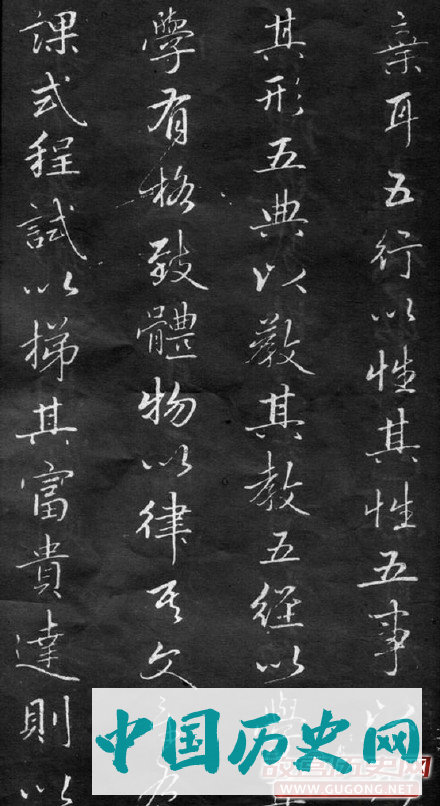 彝耳五行以性其性五事以
其形五典以教其教五經以學其
學有格致體物以律其文章有
課式程試以梯其富貴達則以
中国历史网
WWW.GUGONG.NET